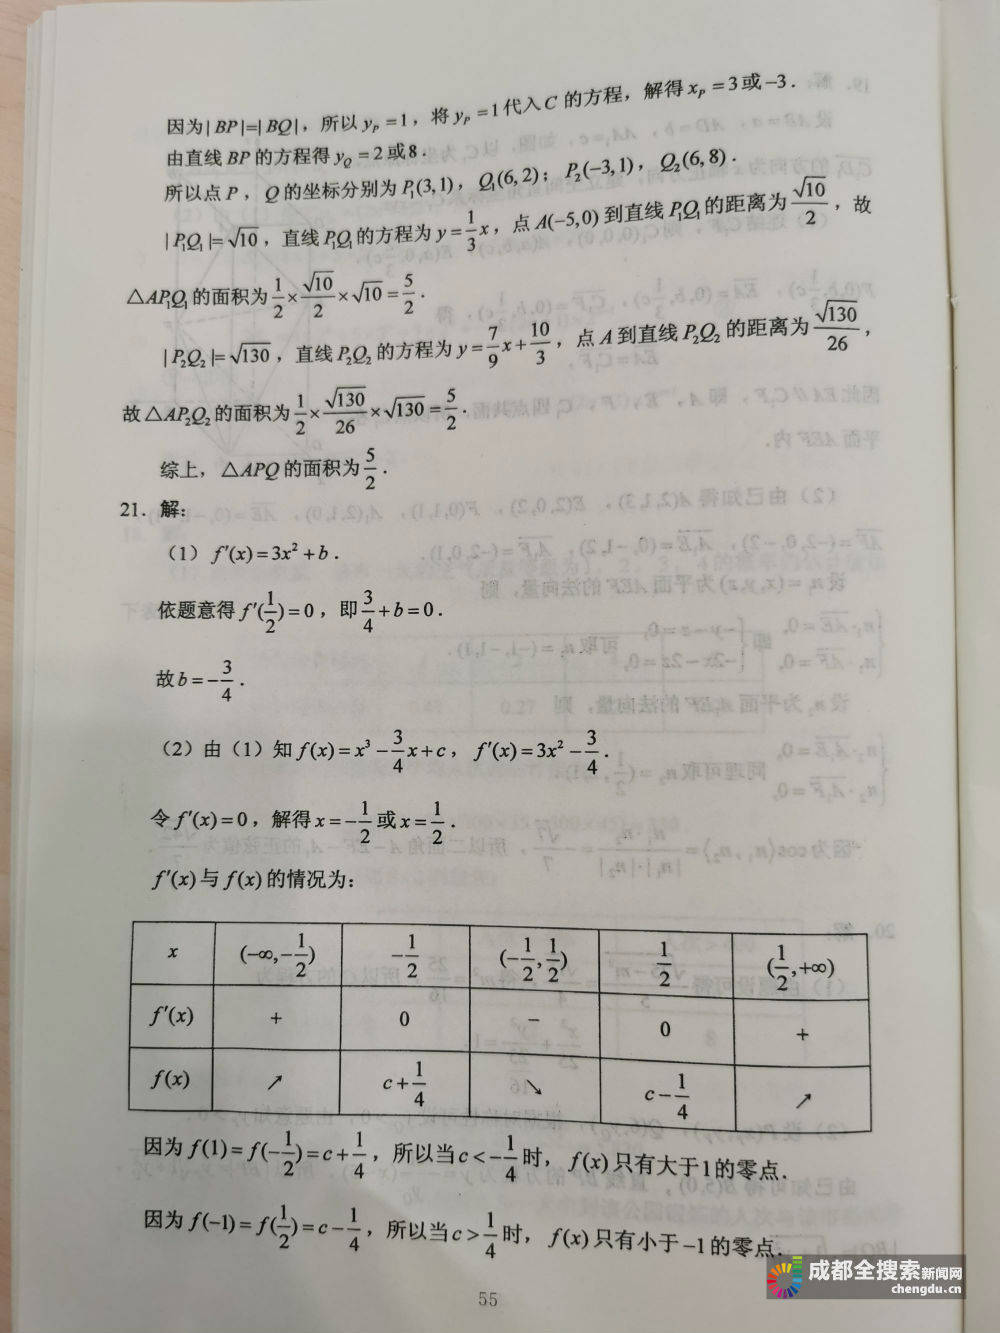 因为|BP|=|BQ|，所以 y_P=1，将 y_P=1代入C 的方程，解得 x_P=3或-3．
由直线 BP 的方程得 y_Q=2 或8．
所以点 P，Q 的坐标分别为 P₁(3,1)，Q₁(6,2)；P₂(-3,1)，Q₂(6,8)．
|P₁Q₁|=√10，直线 P₁Q₁ 的方程为 y=1/3x，点 A(-5,0) 到直线 P₁Q₁ 的距离为 √10/2，故
△AP₁Q₁ 的面积为 1/2×√10/2×√10=5/2．
|P₂Q₂|=√130，直线 P₂Q₂ 的方程为 y=7/9x+10/3，点 A 到直线 P₂Q₂ 的距离为 √130/26，
故△AP₂Q₂ 的面积为 1/2×√130/26×√130=5/2．
综上，△APQ 的面积为 5/2．
21．解：
（1）f′(x)=3x²+b．
依题意得 f′(1/2)=0，即 3/4+b=0．
故 b=-3/4．
（2）由（1）知 f(x)=x³-3/4x+c，f′(x)=3x²-3/4．
令 f′(x)=0，解得 x=-1/2 或 x=1/2．
f′(x) 与 f(x) 的情况为：
x (-∞,-1/2) -1/2 (-1/2,1/2) 1/2 (1/2,+∞)
f′(x) + 0 - 0 +
f(x) ↗ c+1/4 ↘ c-1/4 ↗
因为 f(1)=f(-1/2)=c+1/4，所以当 c<-1/4 时，f(x) 只有大于1的零点．
因为 f(-1)=f(1/2)=c-1/4，所以当 c>1/4 时，f(x) 只有小于-1的零点．
成都全搜索新闻网
chengdu.cn
55